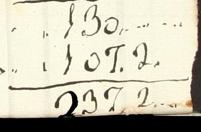 130.
107. 2.
237. 2.